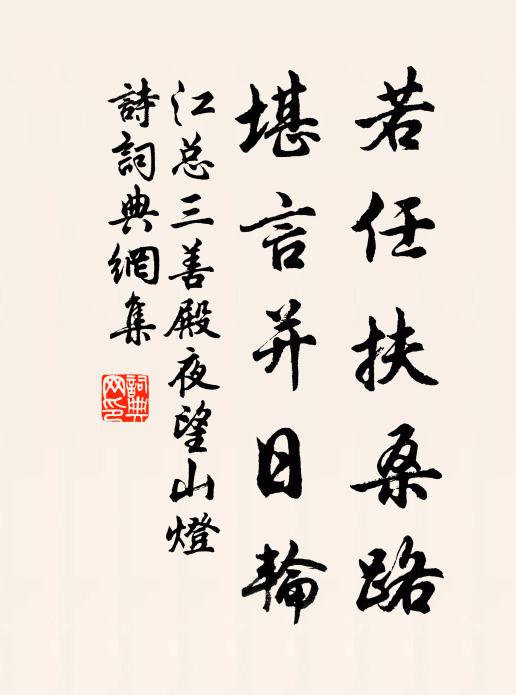 若任扶桑路
堪言并日輪
江总三善殿夜望山燈
詩詞典網集
詞典网印